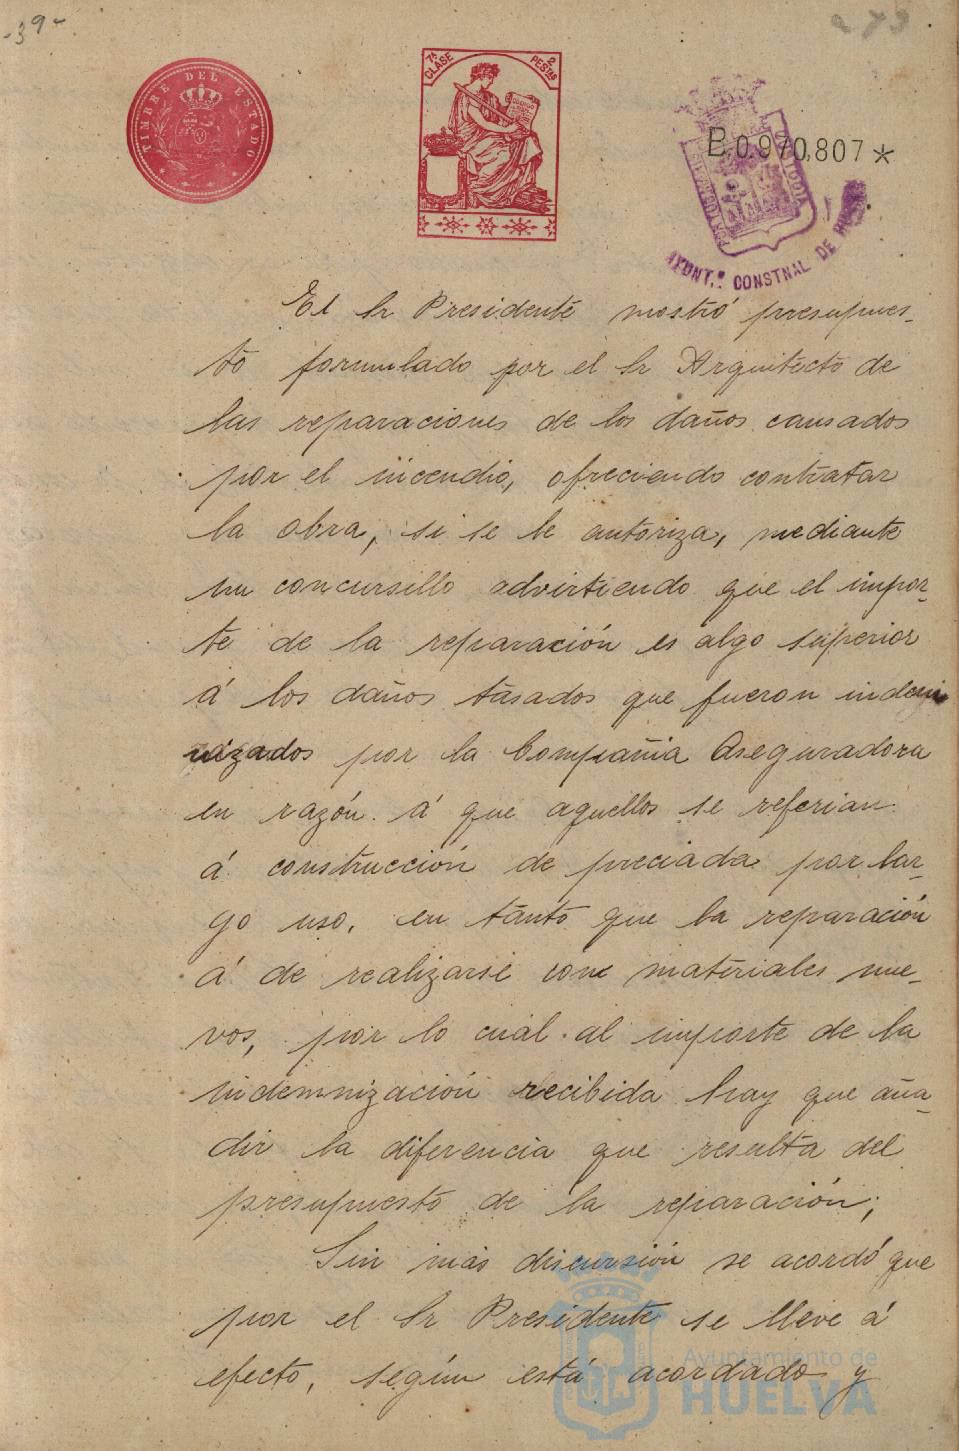 -39-
273
TIMBRE DEL ESTADO
7ª CLASE 2 PESTAS
B.0.970,807*
AYUNT.º CONSTNAL DE
El Sr Presidente mostró presupues-
to formulado por el Sr Arquitecto de
las reparaciones de los daños causados
por el incendio, ofreciendo contratar
la obra, si se le autoriza, mediante
un concursillo advirtiendo que el impor-
te de la reparación es algo superior
á los daños tasados que fueron indem
nizados por la Compañia Aseguradora
en razón á que aquellos se referian
á construcción de preciada por lar-
go uso, en tanto que la reparación
á de realizarse con materiales nue-
vos, por lo cual al importe de la
indemnización recibida hay que aña-
dir la diferencia que resulta del
presupuesto de la reparación;
Sin más discursión se acordó que
por el Sr Presidente se lleve á
efecto, según está acordado y
Ayuntamiento de
HUELVA